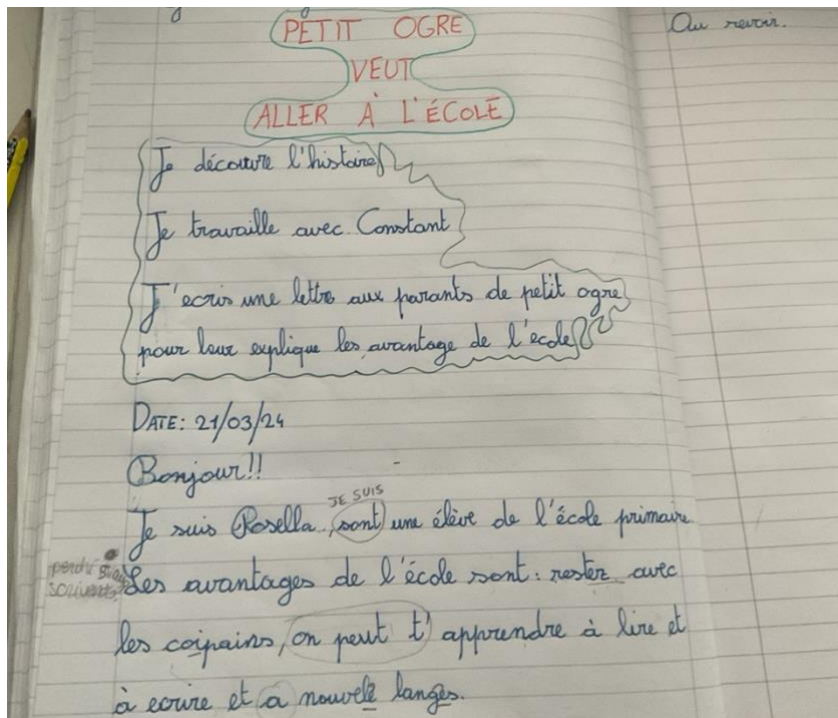 PETIT OGRE
VEUT
ALLER À L'ÉCOLE
Je découvre l'histoire
Je travaille avec Constant
J'ecris une lettre aux parants de petit ogre
pour leur explique les avantage de l'ecole
DATE: 21/03/24
Bonjour!!
JE SUIS
Je suis Rosella, sont une élève de l'école primaire
Les avantages de l'école sont: rester avec
les coipains, on peut t'apprendre à lire et
à ecrire et a nouvele langes.
Au revoir.